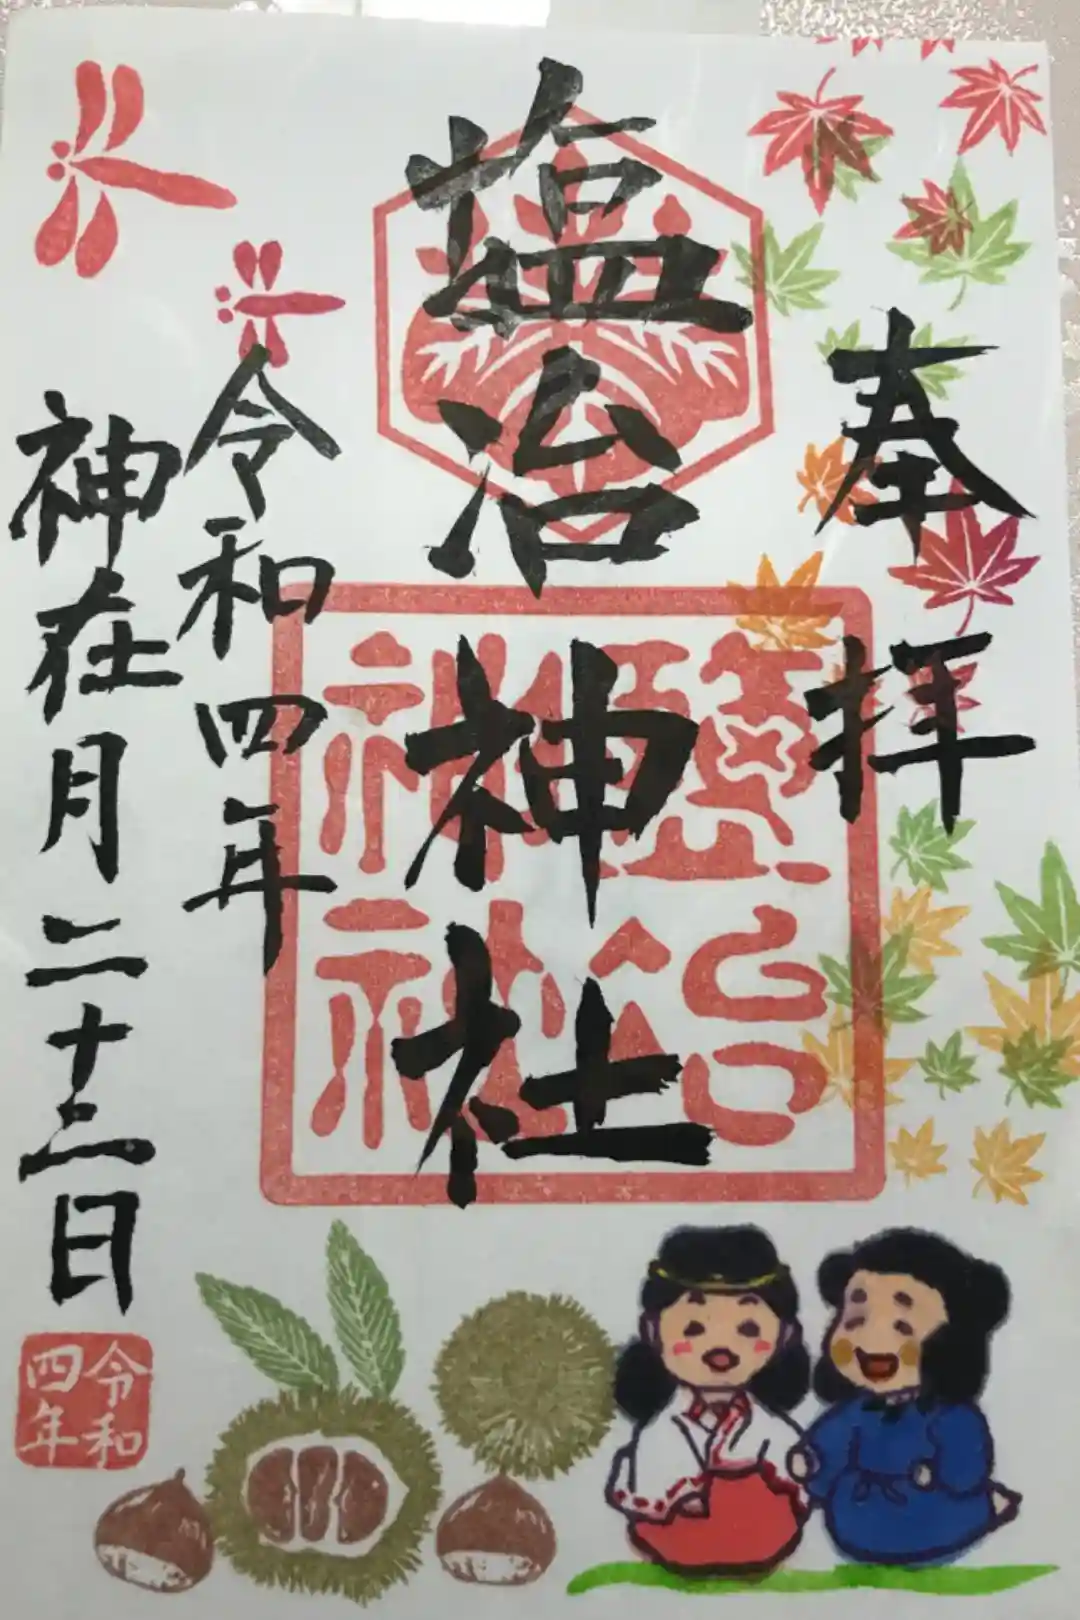 奉拝
塩冶神社
令和四年
神在月二十三日
令和
四年